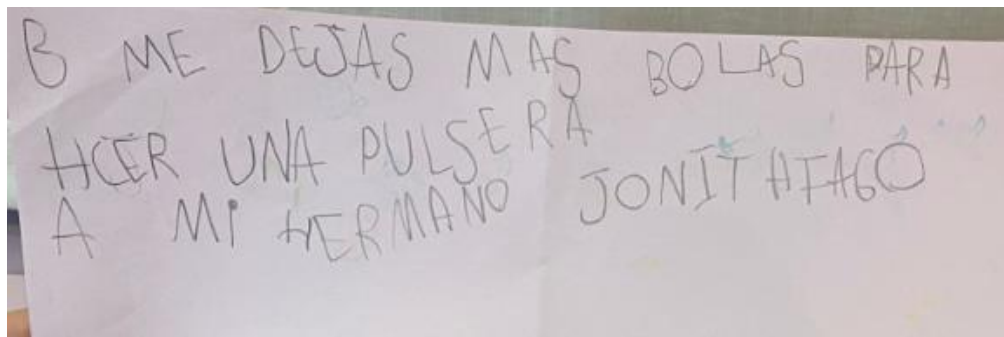 B ME DEJAS MAS BOLAS PARA
HCER UNA PULSERA
A MI HERMANO JONITHIAGO